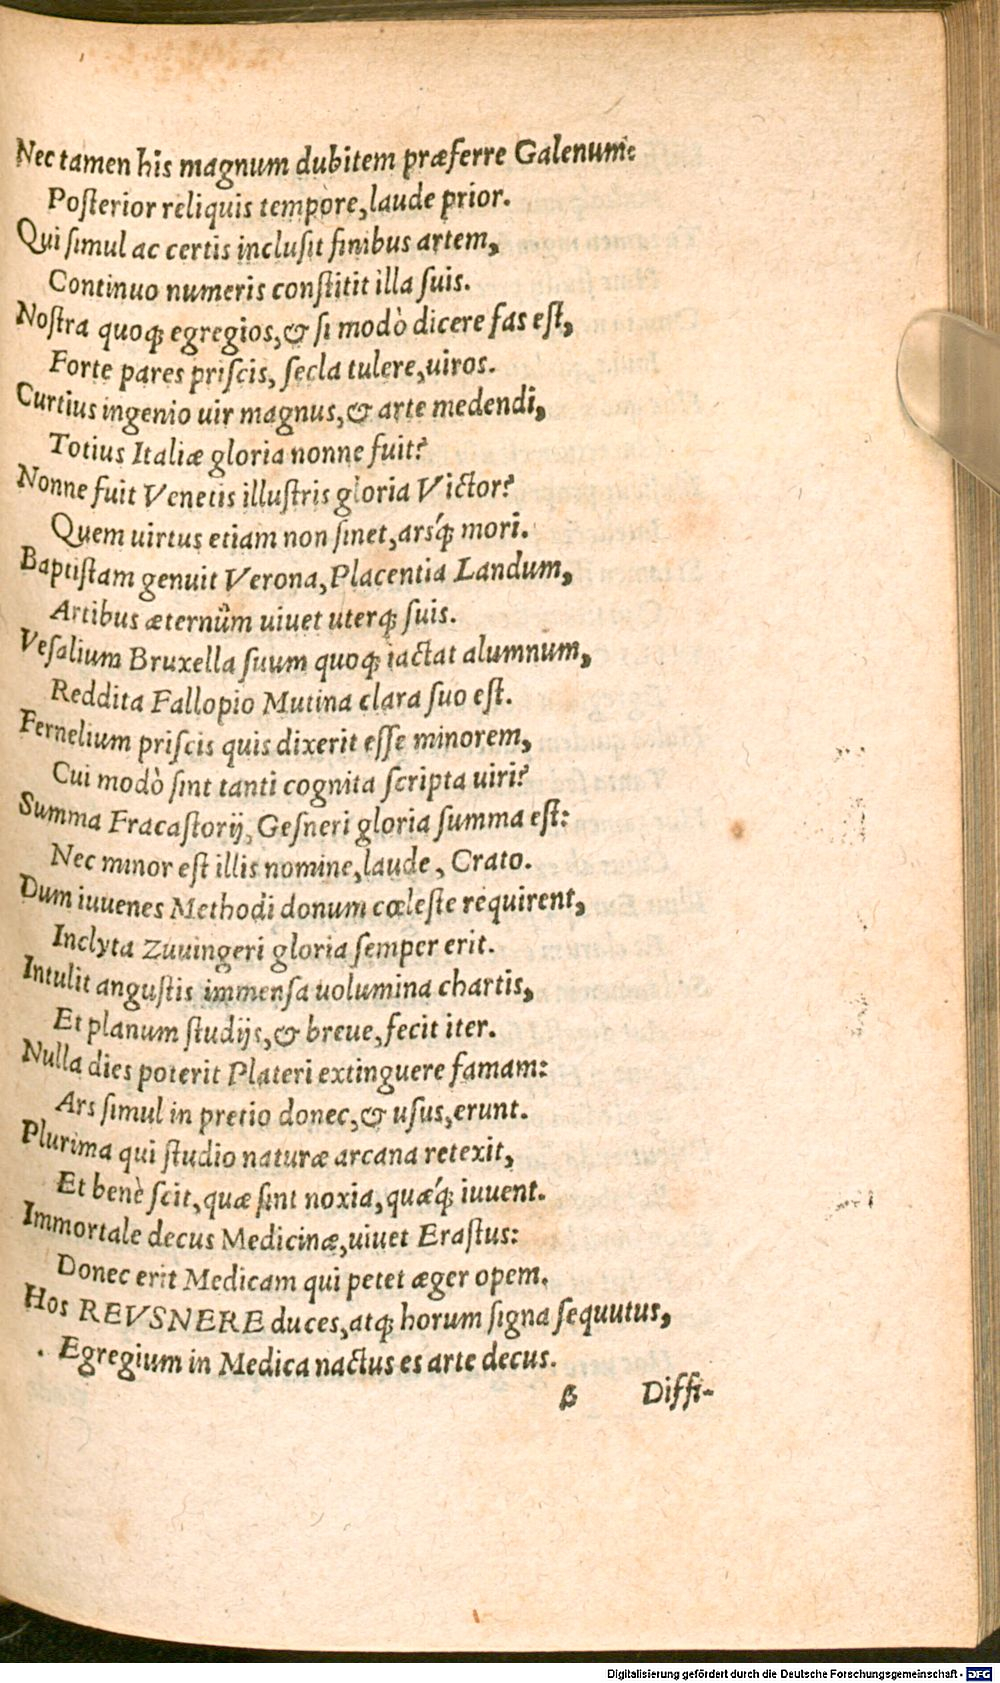 Nec tamen his magnum dubitem præferre Galenum:
Poſterior reliquis tempore, laude prior.
Qui ſimul ac certis incluſit finibus artem,
Continuo numeris conſtitit illa ſuis.
Noſtra quoq; egregios, & ſi modò dicere fas eſt,
Forte pares priſcis, ſecla tulere, uiros.
Curtius ingenio uir magnus, & arte medendi,
Totius Italiæ gloria nonne fuit?
Nonne fuit Venetis illuſtris gloria Victor?
Quem uirtus etiam non ſinet, arsq́; mori.
Baptiſtam genuit Verona, Placentia Landum,
Artibus æternûm uiuet uterq; ſuis.
Veſalium Bruxella ſuum quoq; iactat alumnum,
Reddita Fallopio Mutina clara ſuo eſt.
Fernelium priſcis quis dixerit eſſe minorem,
Cui modò ſint tanti cognita ſcripta uiri?
Summa Fracaſtorij, Geſneri gloria ſumma eſt:
Nec minor eſt illis nomine, laude, Crato.
Dum iuuenes Methodi donum cœleſte requirent,
Inclyta Zuuingeri gloria ſemper erit.
Intulit anguſtis immenſa uolumina chartis,
Et planum ſtudijs, & breue, fecit iter.
Nulla dies poterit Plateri extinguere famam:
Ars ſimul in pretio donec, & uſus, erunt.
Plurima qui ſtudio naturæ arcana retexit,
Et benè ſcit, quæ ſint noxia, quæq́; iuuent.
Immortale decus Medicinæ, uiuet Eraſtus:
Donec erit Medicam qui petet æger opem.
Hos REVSNERE duces, atq; horum ſigna ſequutus,
Egregium in Medica nactus es arte decus.
β Diffi-
Digitalisierung gefördert durch die Deutsche Forschungsgemeinschaft - DFG